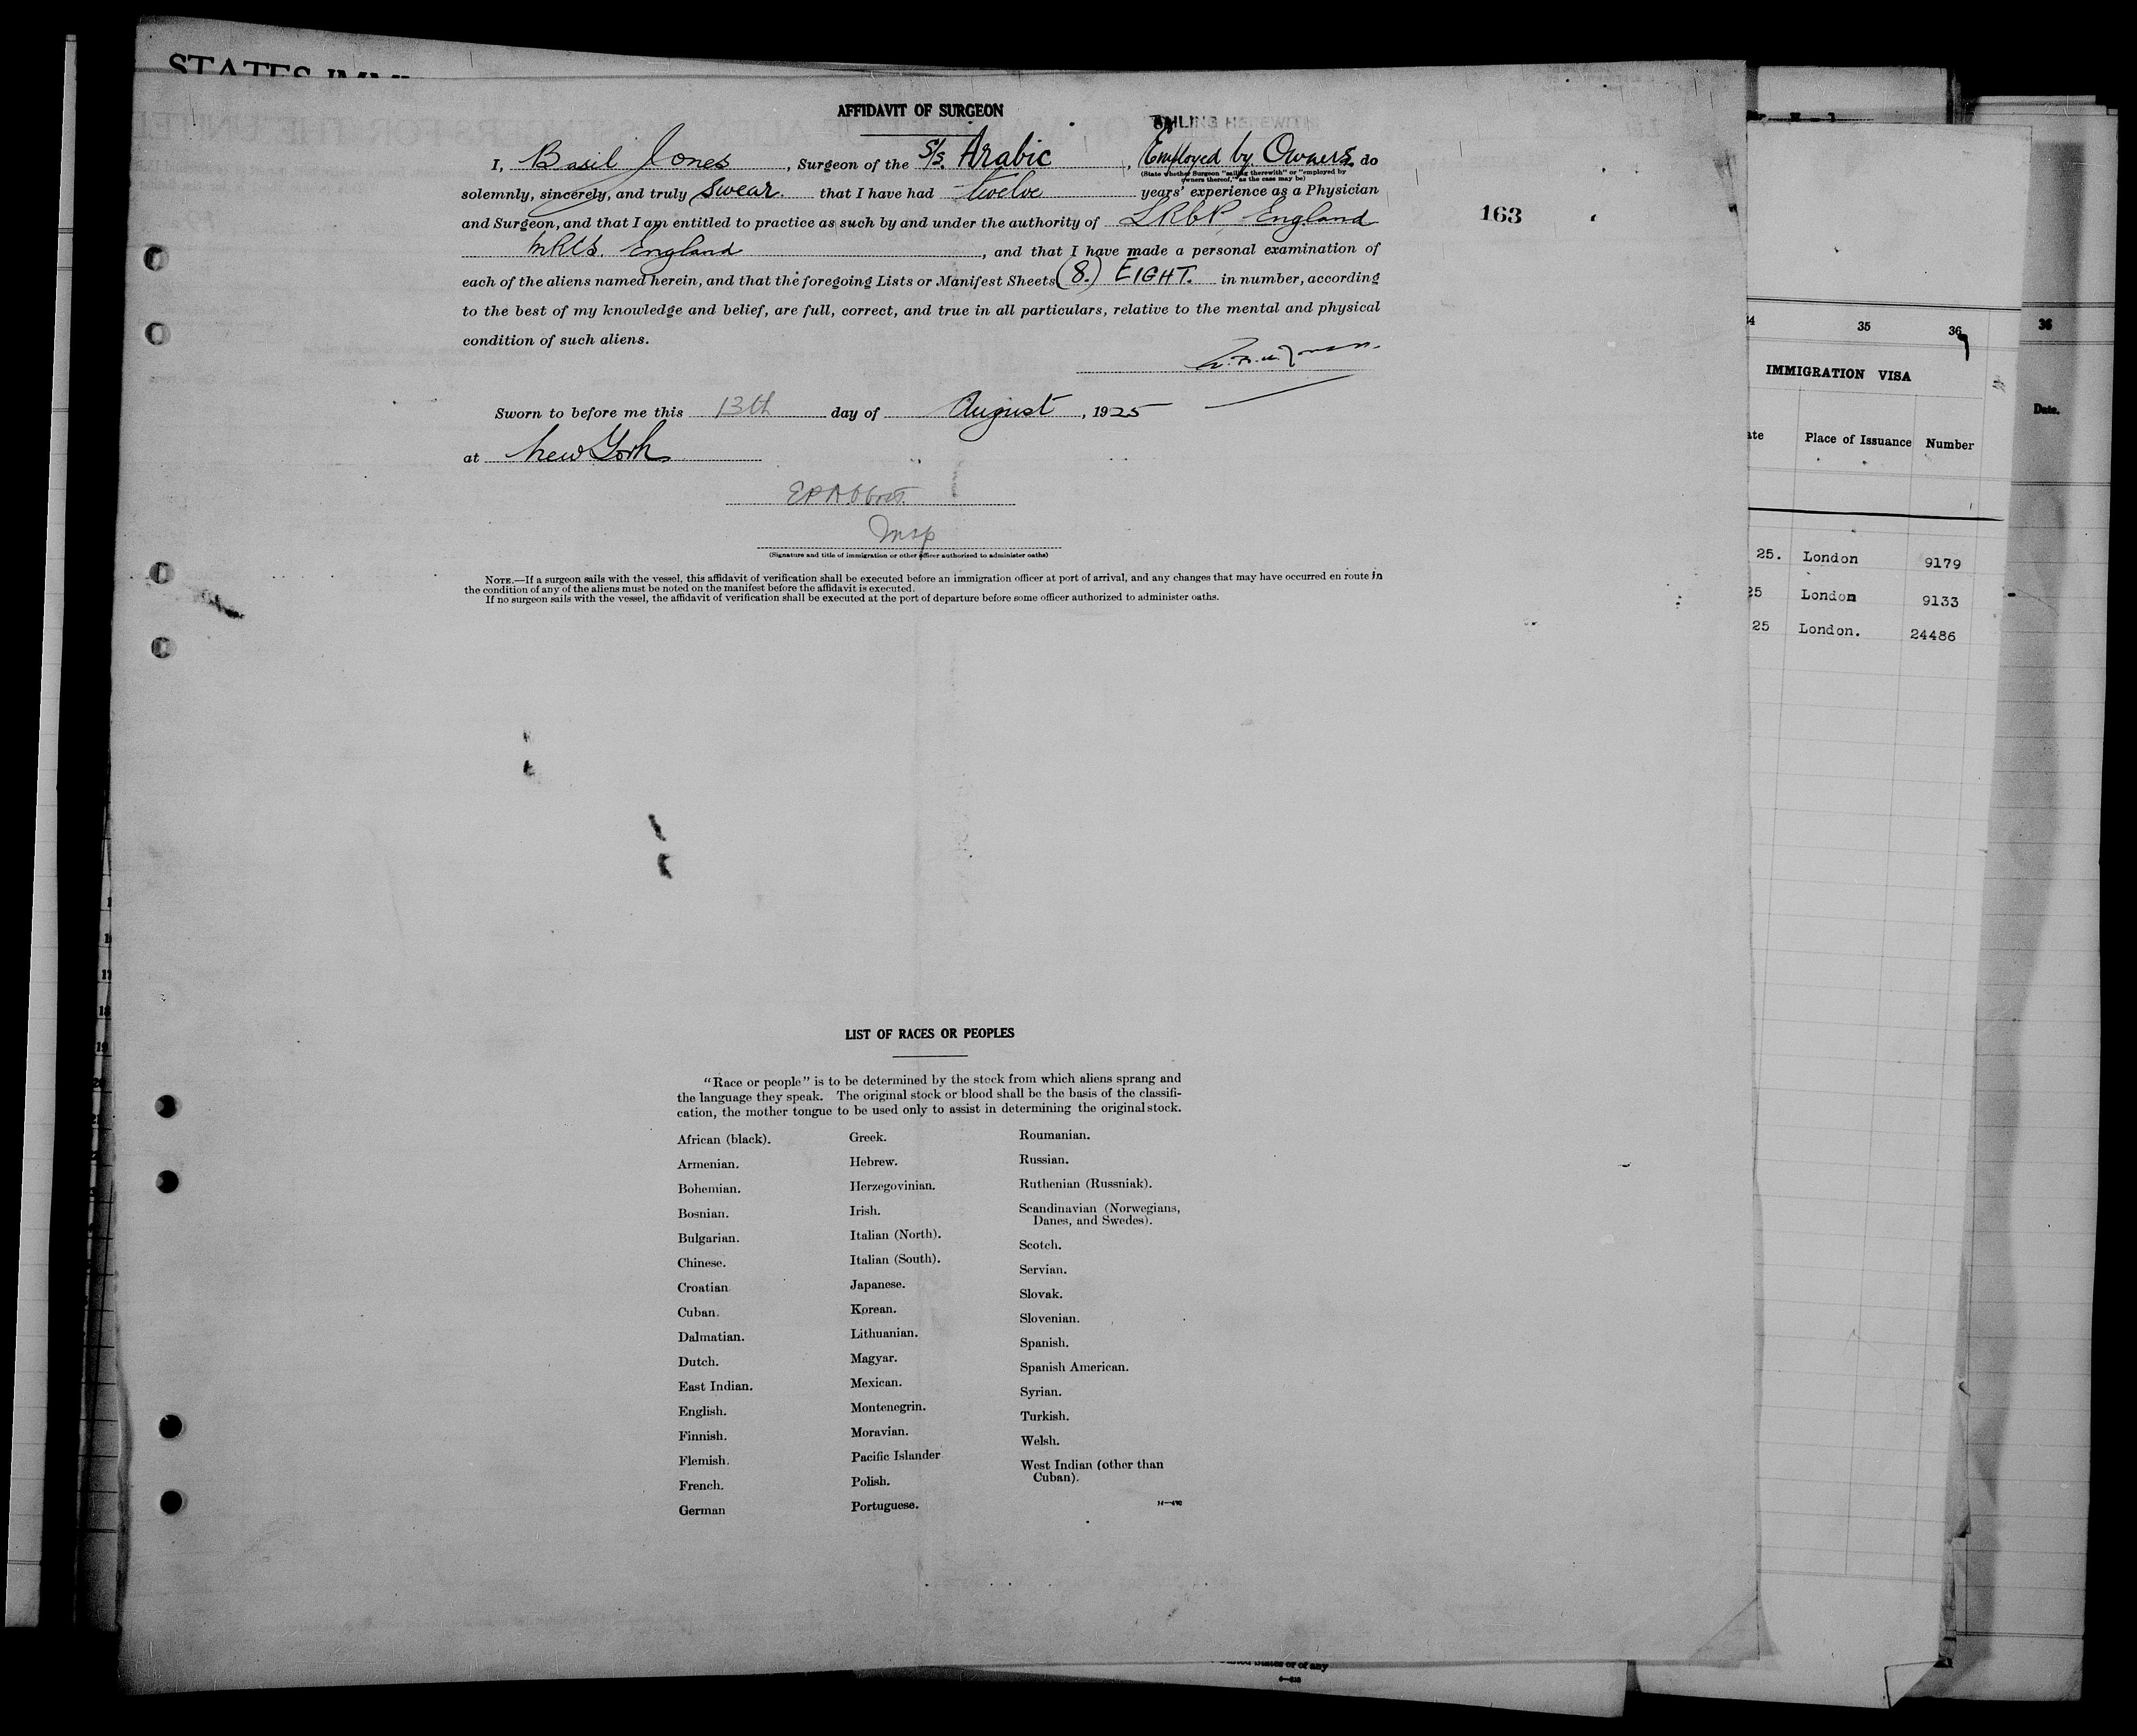 AFFIDAVIT OF SURGEON
SAILING HEREWITH
I, Basil Jones, Surgeon of the S/s. Arabic, Employed by Owners, do
(State whether Surgeon "sailing therewith" or "employed by
owners thereof," as the case may be)
solemnly, sincerely, and truly swear that I have had twelve years' experience as a Physician
and Surgeon, and that I am entitled to practice as such by and under the authority of LRCP England
MRCS. England, and that I have made a personal examination of
163
each of the aliens named herein, and that the foregoing Lists or Manifest Sheets (8.) EIGHT. in number, according
to the best of my knowledge and belief, are full, correct, and true in all particulars, relative to the mental and physical
condition of such aliens.
Sworn to before me this 13th day of August, 1925
at New York
EPAbbott.
Insp
(Signature and title of immigration or other officer authorized to administer oaths)
NOTE.—If a surgeon sails with the vessel, this affidavit of verification shall be executed before an immigration officer at port of arrival, and any changes that may have occurred en route in
the condition of any of the aliens must be noted on the manifest before the affidavit is executed.
If no surgeon sails with the vessel, the affidavit of verification shall be executed at the port of departure before some officer authorized to administer oaths.
LIST OF RACES OR PEOPLES
"Race or people" is to be determined by the stock from which aliens sprang and
the language they speak. The original stock or blood shall be the basis of the classifi-
cation, the mother tongue to be used only to assist in determining the original stock.
African (black).
Armenian.
Bohemian.
Bosnian.
Bulgarian.
Chinese.
Croatian.
Cuban.
Dalmatian.
Dutch.
East Indian.
English.
Finnish.
Flemish.
French.
German
Greek.
Hebrew.
Herzegovinian.
Irish.
Italian (North).
Italian (South).
Japanese.
Korean.
Lithuanian.
Magyar.
Mexican.
Montenegrin.
Moravian.
Pacific Islander
Polish.
Portuguese.
Roumanian.
Russian.
Ruthenian (Russniak).
Scandinavian (Norwegians,
Danes, and Swedes).
Scotch.
Servian.
Slovak.
Slovenian.
Spanish.
Spanish American.
Syrian.
Turkish.
Welsh.
West Indian (other than
Cuban).
35 36
IMMIGRATION VISA
Place of Issuance Number
25. London 9179
25 London 9133
25 London. 24486
36
Date.